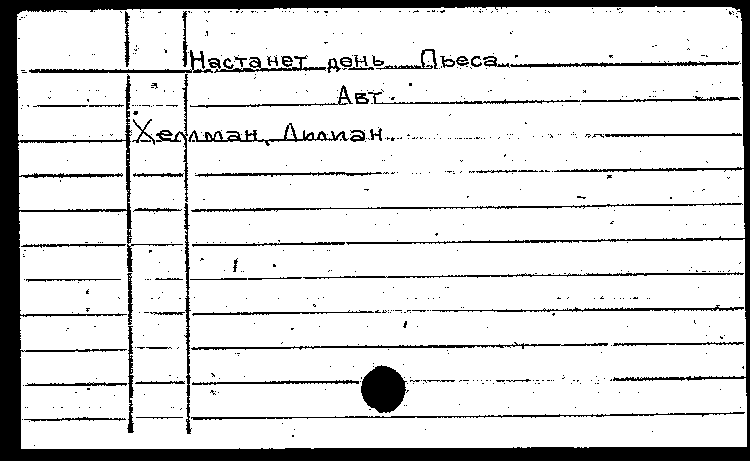 Настанет день Пьеса
Авт.
Хеллман, Лилиан.